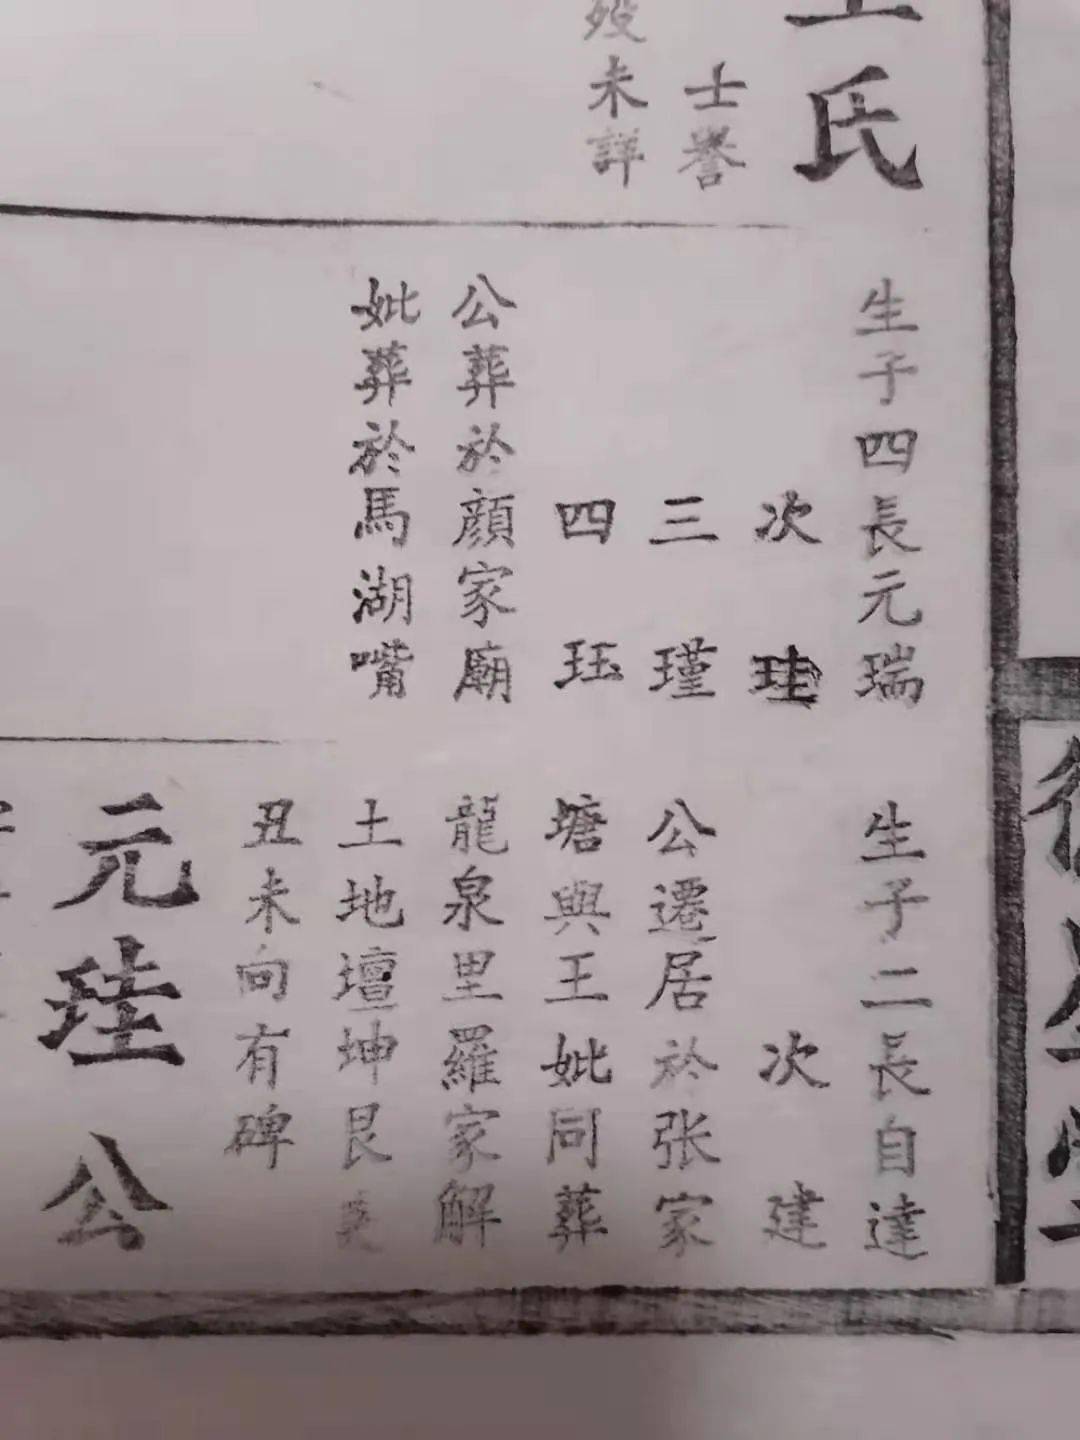 氏
士譽
殁未詳
生子四長元瑞
次珪
三瑾
四珏
公葬於顔家廟
妣葬於馬湖嘴
生子二長自達
次建
公遷居於张家
塘與王妣同葬
龍泉里羅家解
土地壇坤艮兼
丑未向有碑
元珪公